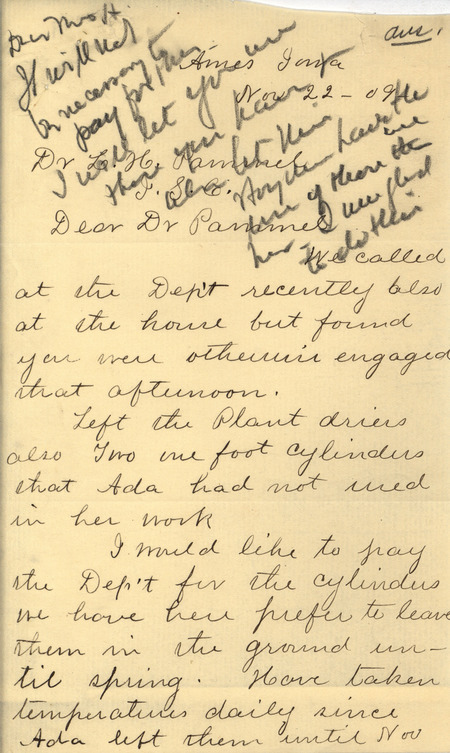 ans.
Dear Mrs H.
It will not
be necessary to
pay for them
I will let you use
those you have
also let Miss
have the
use of those
glad
to do this
Ames Iowa
Nov 22 - 09
Dr L. H. Pammel
I. S. C.
Dear Dr Pammel
We called
at the Dep't recently also
at the house but found
you were otherwise engaged
that afternoon.
Left the Plant driers
also Two one foot cylinders
that Ada had not used
in her work
I would like to pay
the Dep't for the cylinders
we have here prefer to leave
them in the ground un-
til spring. Have taken
temperatures daily since
Ada left them until Nov